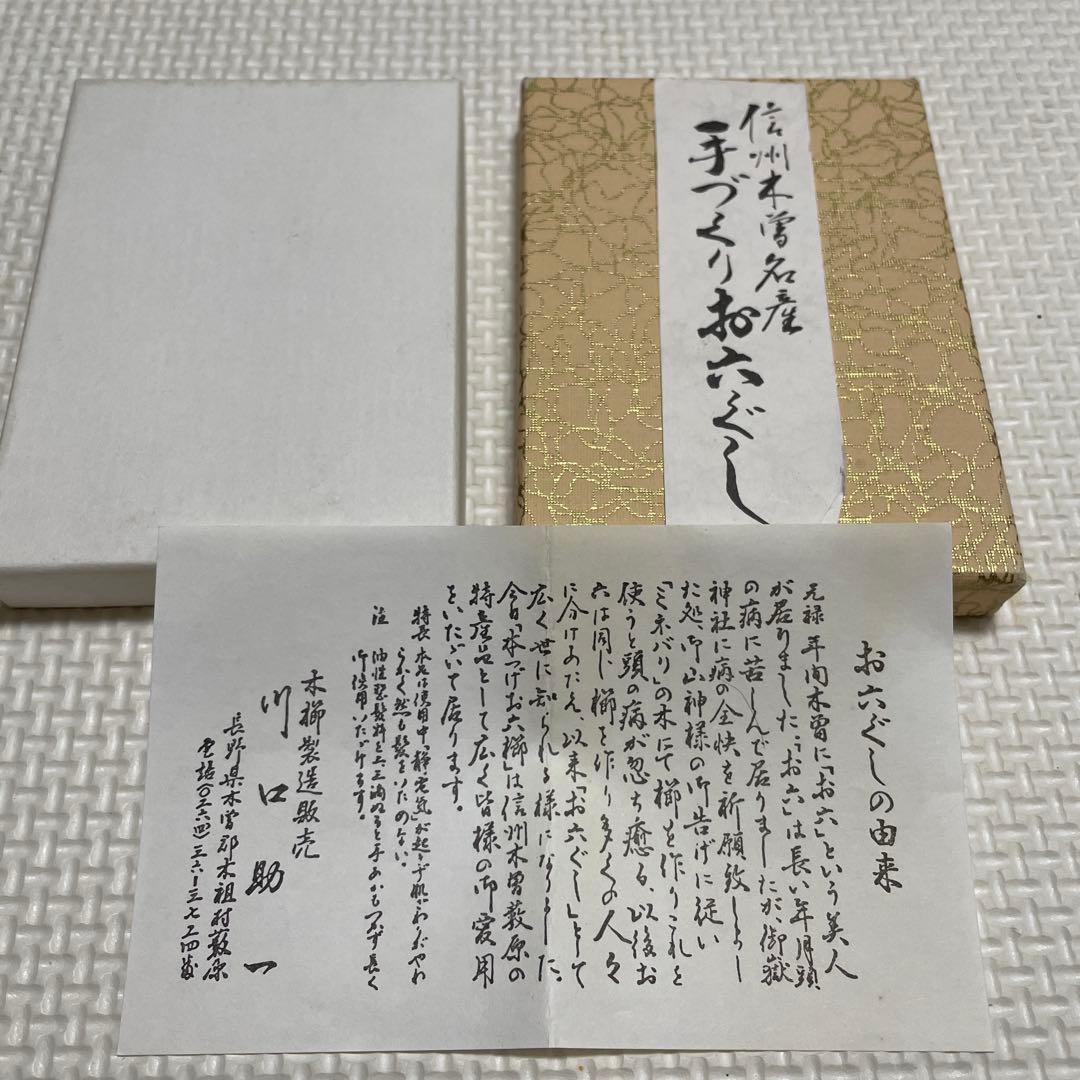 信州木曽名産
手づくりお六ぐし
お六ぐしの由来
元禄年間木曽に「お六」という美人
が居りました。「お六」は長い年月頭
の病に苦しんで居りましたが、御嶽
神社に病の全快を祈願致しまし
た処、御山神様の御告げに従い
「ミネバリ」の木にて櫛を作りこれを
使うと頭の病が忽ち癒る、以後お
六は同じ櫛を作り多くの人々
に分けあたえ、以来「お六ぐし」として
広く世に知られる様になりました。
今日「本つげお六櫛」は信州木曽薮原の
特産品として広く皆様の御愛用
をいただいて居ります。
特長 本品は使用中「静電気」が起らず肌ざわりがやわ
らかく然も髪をいためない。
注 油性整髪料を二、三滴ぬると手あかもつかず長く
御使用いただけます。
木櫛製造販売
川口助一
長野県木曽郡木祖村薮原
電話〇二六四)三六-三七二四番